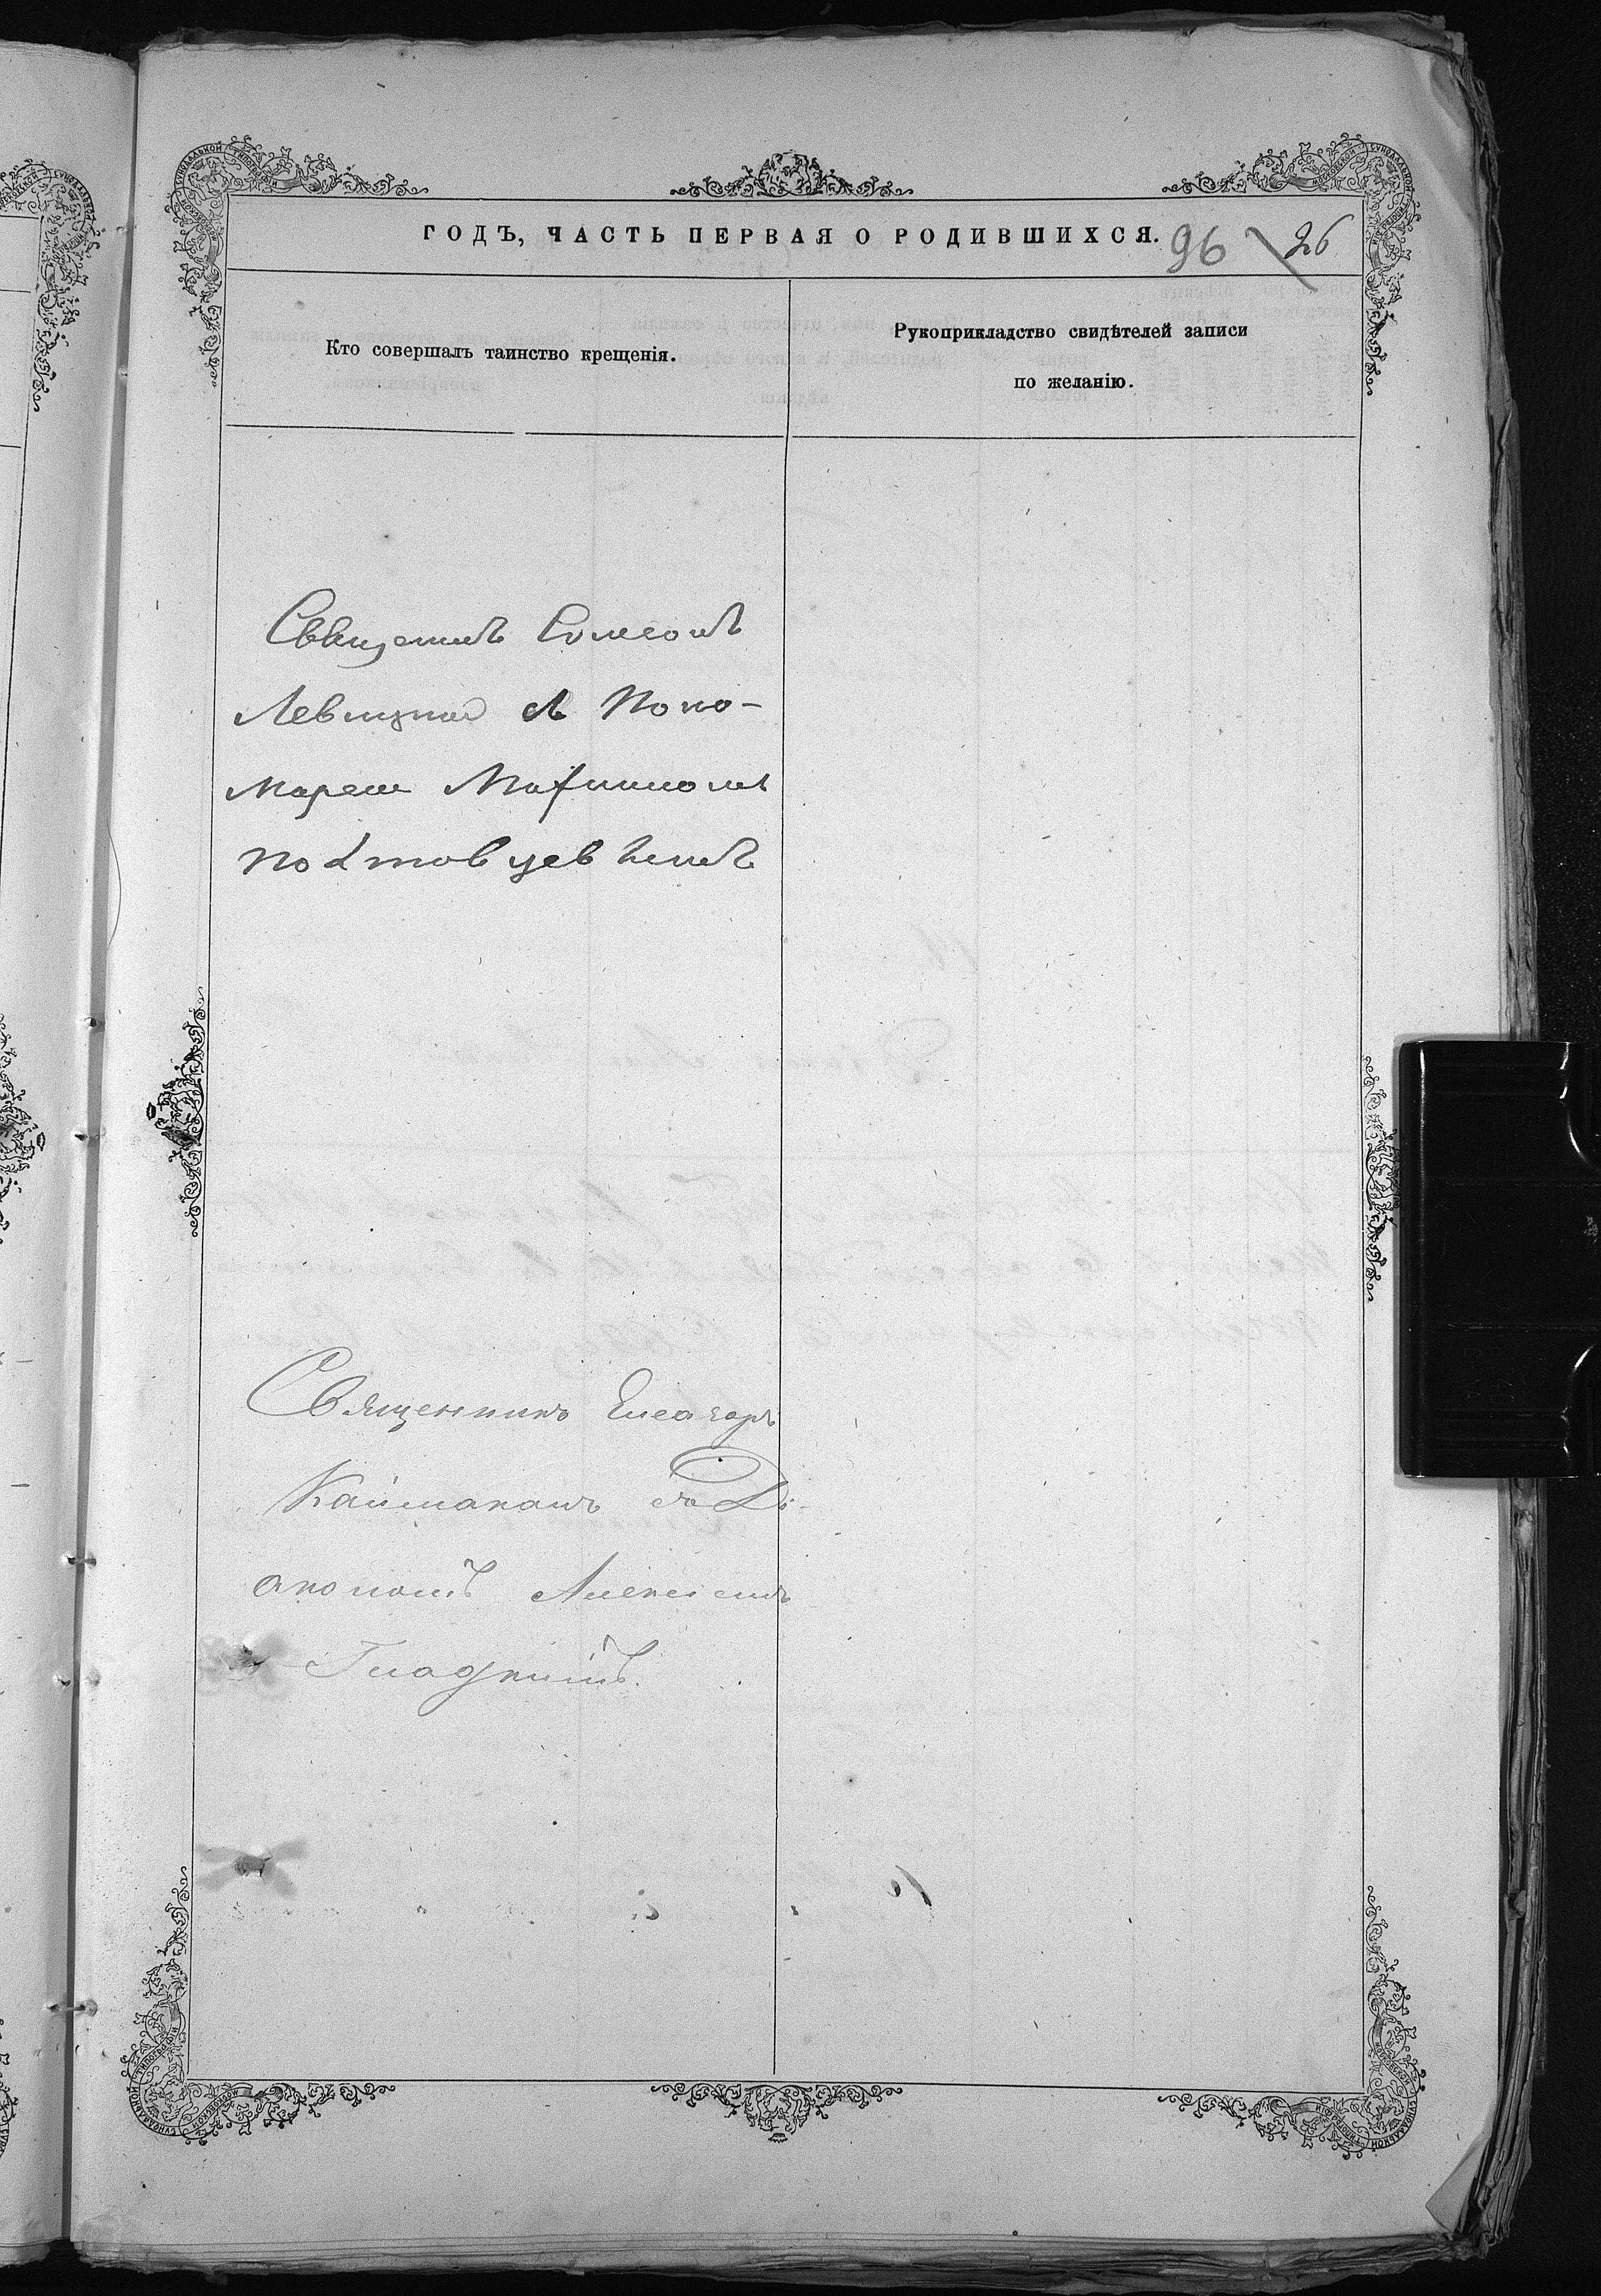 ГОДЪ, ЧАСТЬ ПЕРВАЯ О РОДИВШИХСЯ. 96 26
Кто совершалъ таинство крещенія.
Рукоприкладство свидѣтелей записи
по желанію.
Священикъ Симеонъ
Левицкій съ Поно-
маремъ
Священникъ Елеазаръ
Каймаканъ съ Ді-
акономъ Алексіемъ
Гладкимъ.